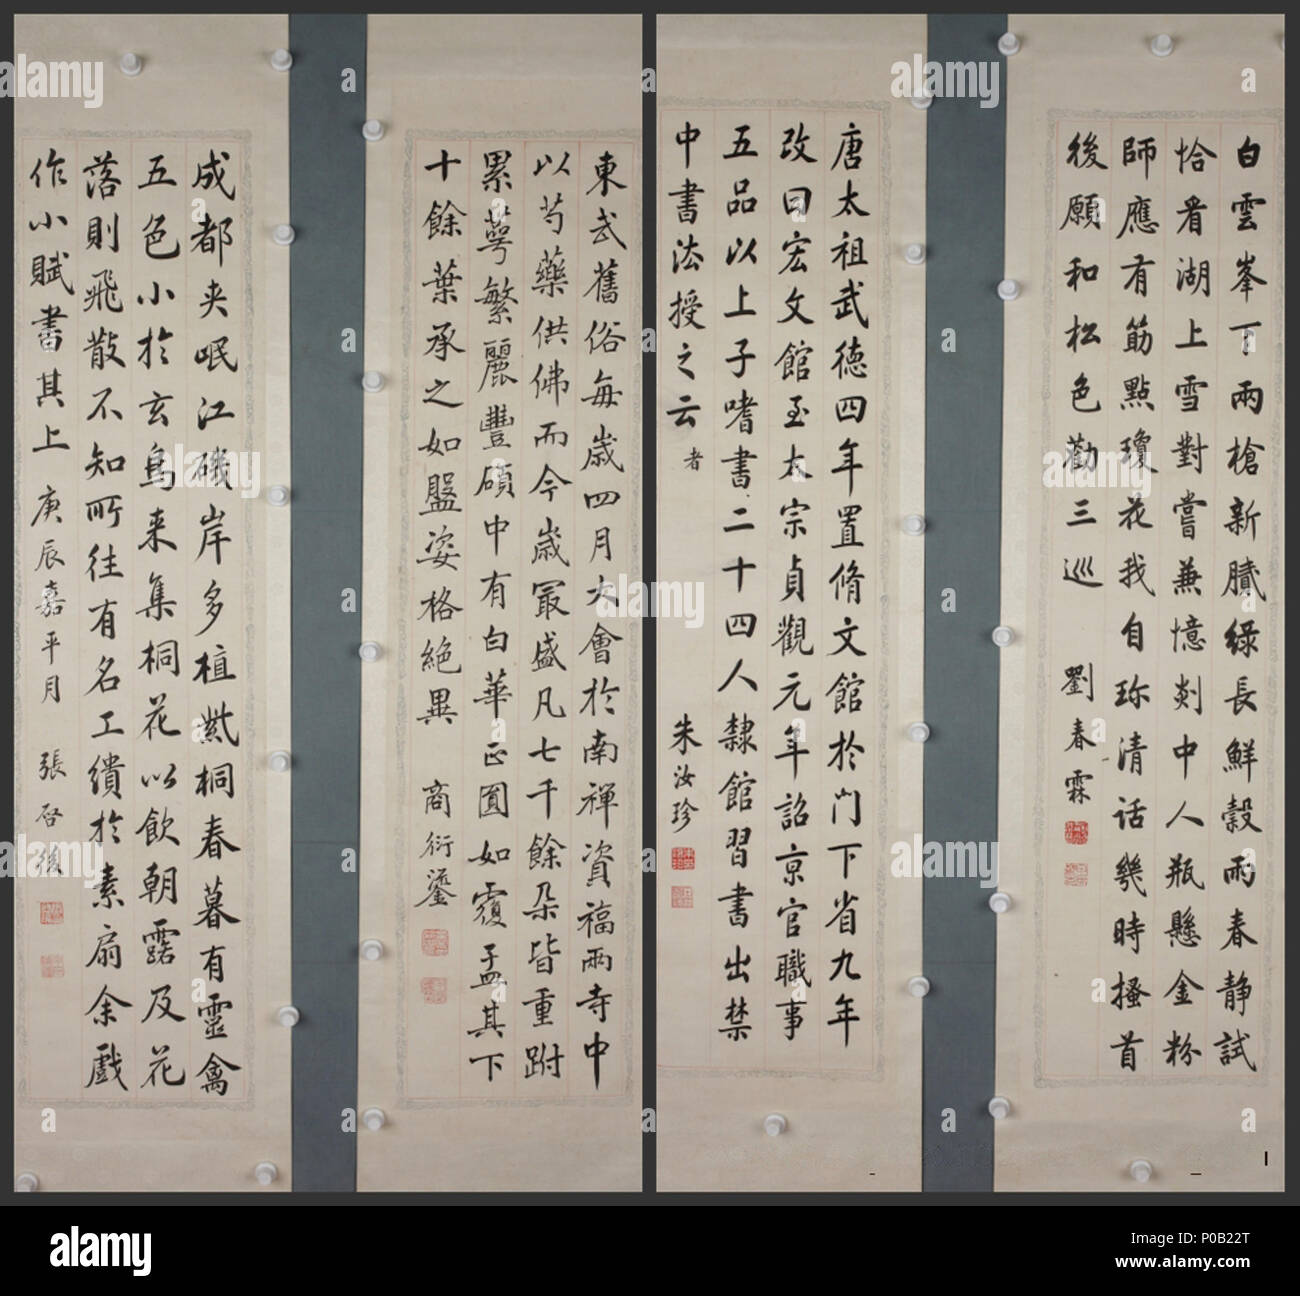 白雲峯下兩槍新膩綠長鮮穀雨春靜試
恰看湖上雪對嘗兼憶剡中人瓶懸金粉
師應有筋點瓊花我自珎清話幾時搔首
後願和松色勸三巡
劉春霖
唐太祖武德四年置脩文館於門下省九年
改曰宏文館至太宗貞觀元年詔京官職事
五品以上子嗜書二十四人隸館習書出禁
中書法授之云者
朱汝珍
東武舊俗每歲四月大會於南禪資福兩寺中
以芍藥供佛而今歲冣盛凡七千餘朵皆重跗
累萼繁麗豐碩中有白華正圓如覆盂其下
十餘葉承之如盤姿格絕異
商衍鎏
成都夾岷江磯岸多植紫桐春暮有靈禽
五色小於玄鳥来集桐花以飲朝露及花
落則飛散不知所往有名工繢於素扇余戲
作小賦書其上 庚辰嘉平月 張啓後
alamy
alamy stock photo
P0B22T
www.alamy.com